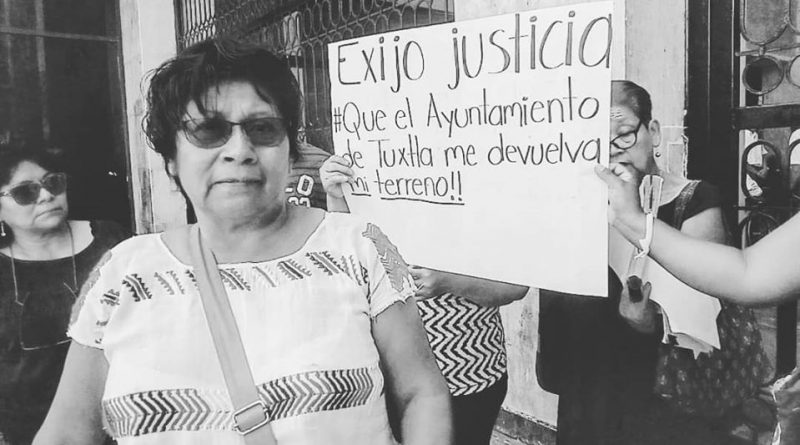 Exijo justicia
#Que el Ayuntamiento
de Tuxtla me devuelva
mi terreno!!